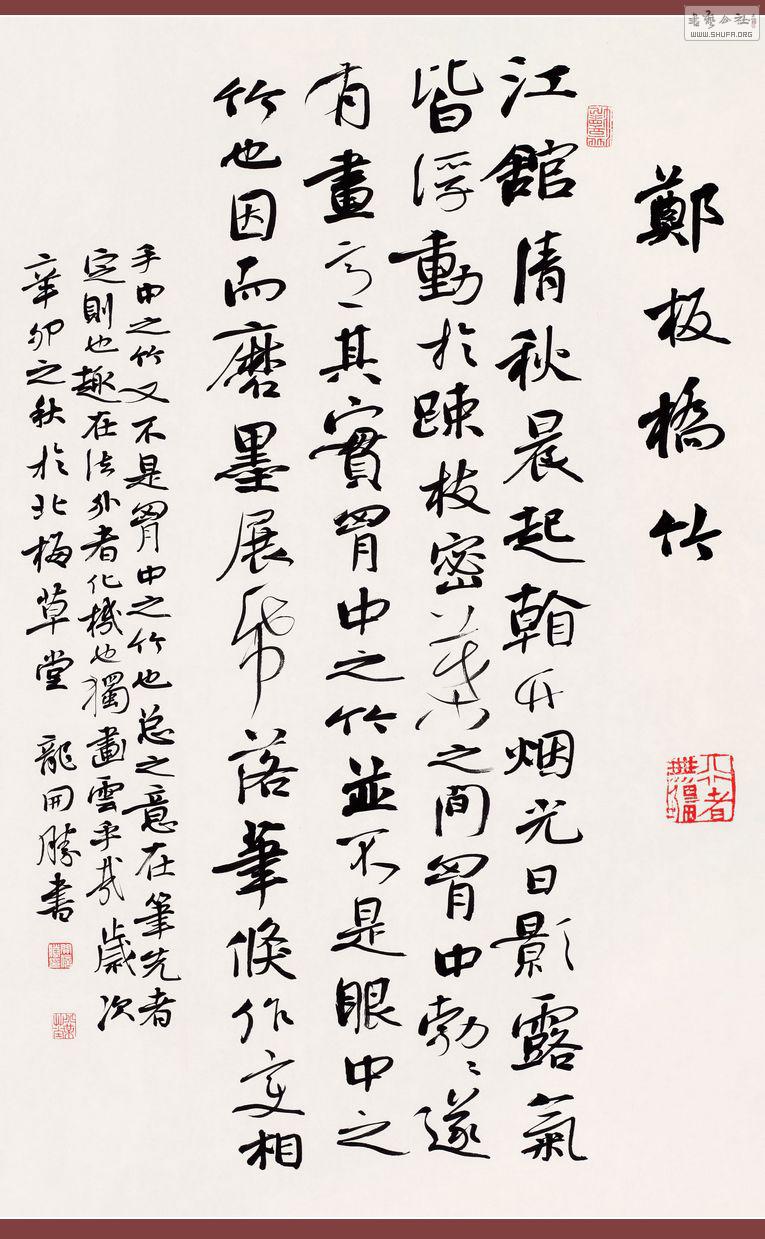 鄭板橋竹
江館清秋晨起看竹烟光日影露氣
皆浮動於疎枝密葉之間胷中勃〻遂
有畫意其實胷中之竹並不是眼中之
竹也因而磨墨展帋落筆倏作変相
手中之竹又不是胷中之竹也总之意在筆先者
定則也趣在法外者化機也獨畫雲乎哉 歲次
辛卯之秋於北梅草堂 龍開勝書
書藝公社
WWW.SHUFA.ORG